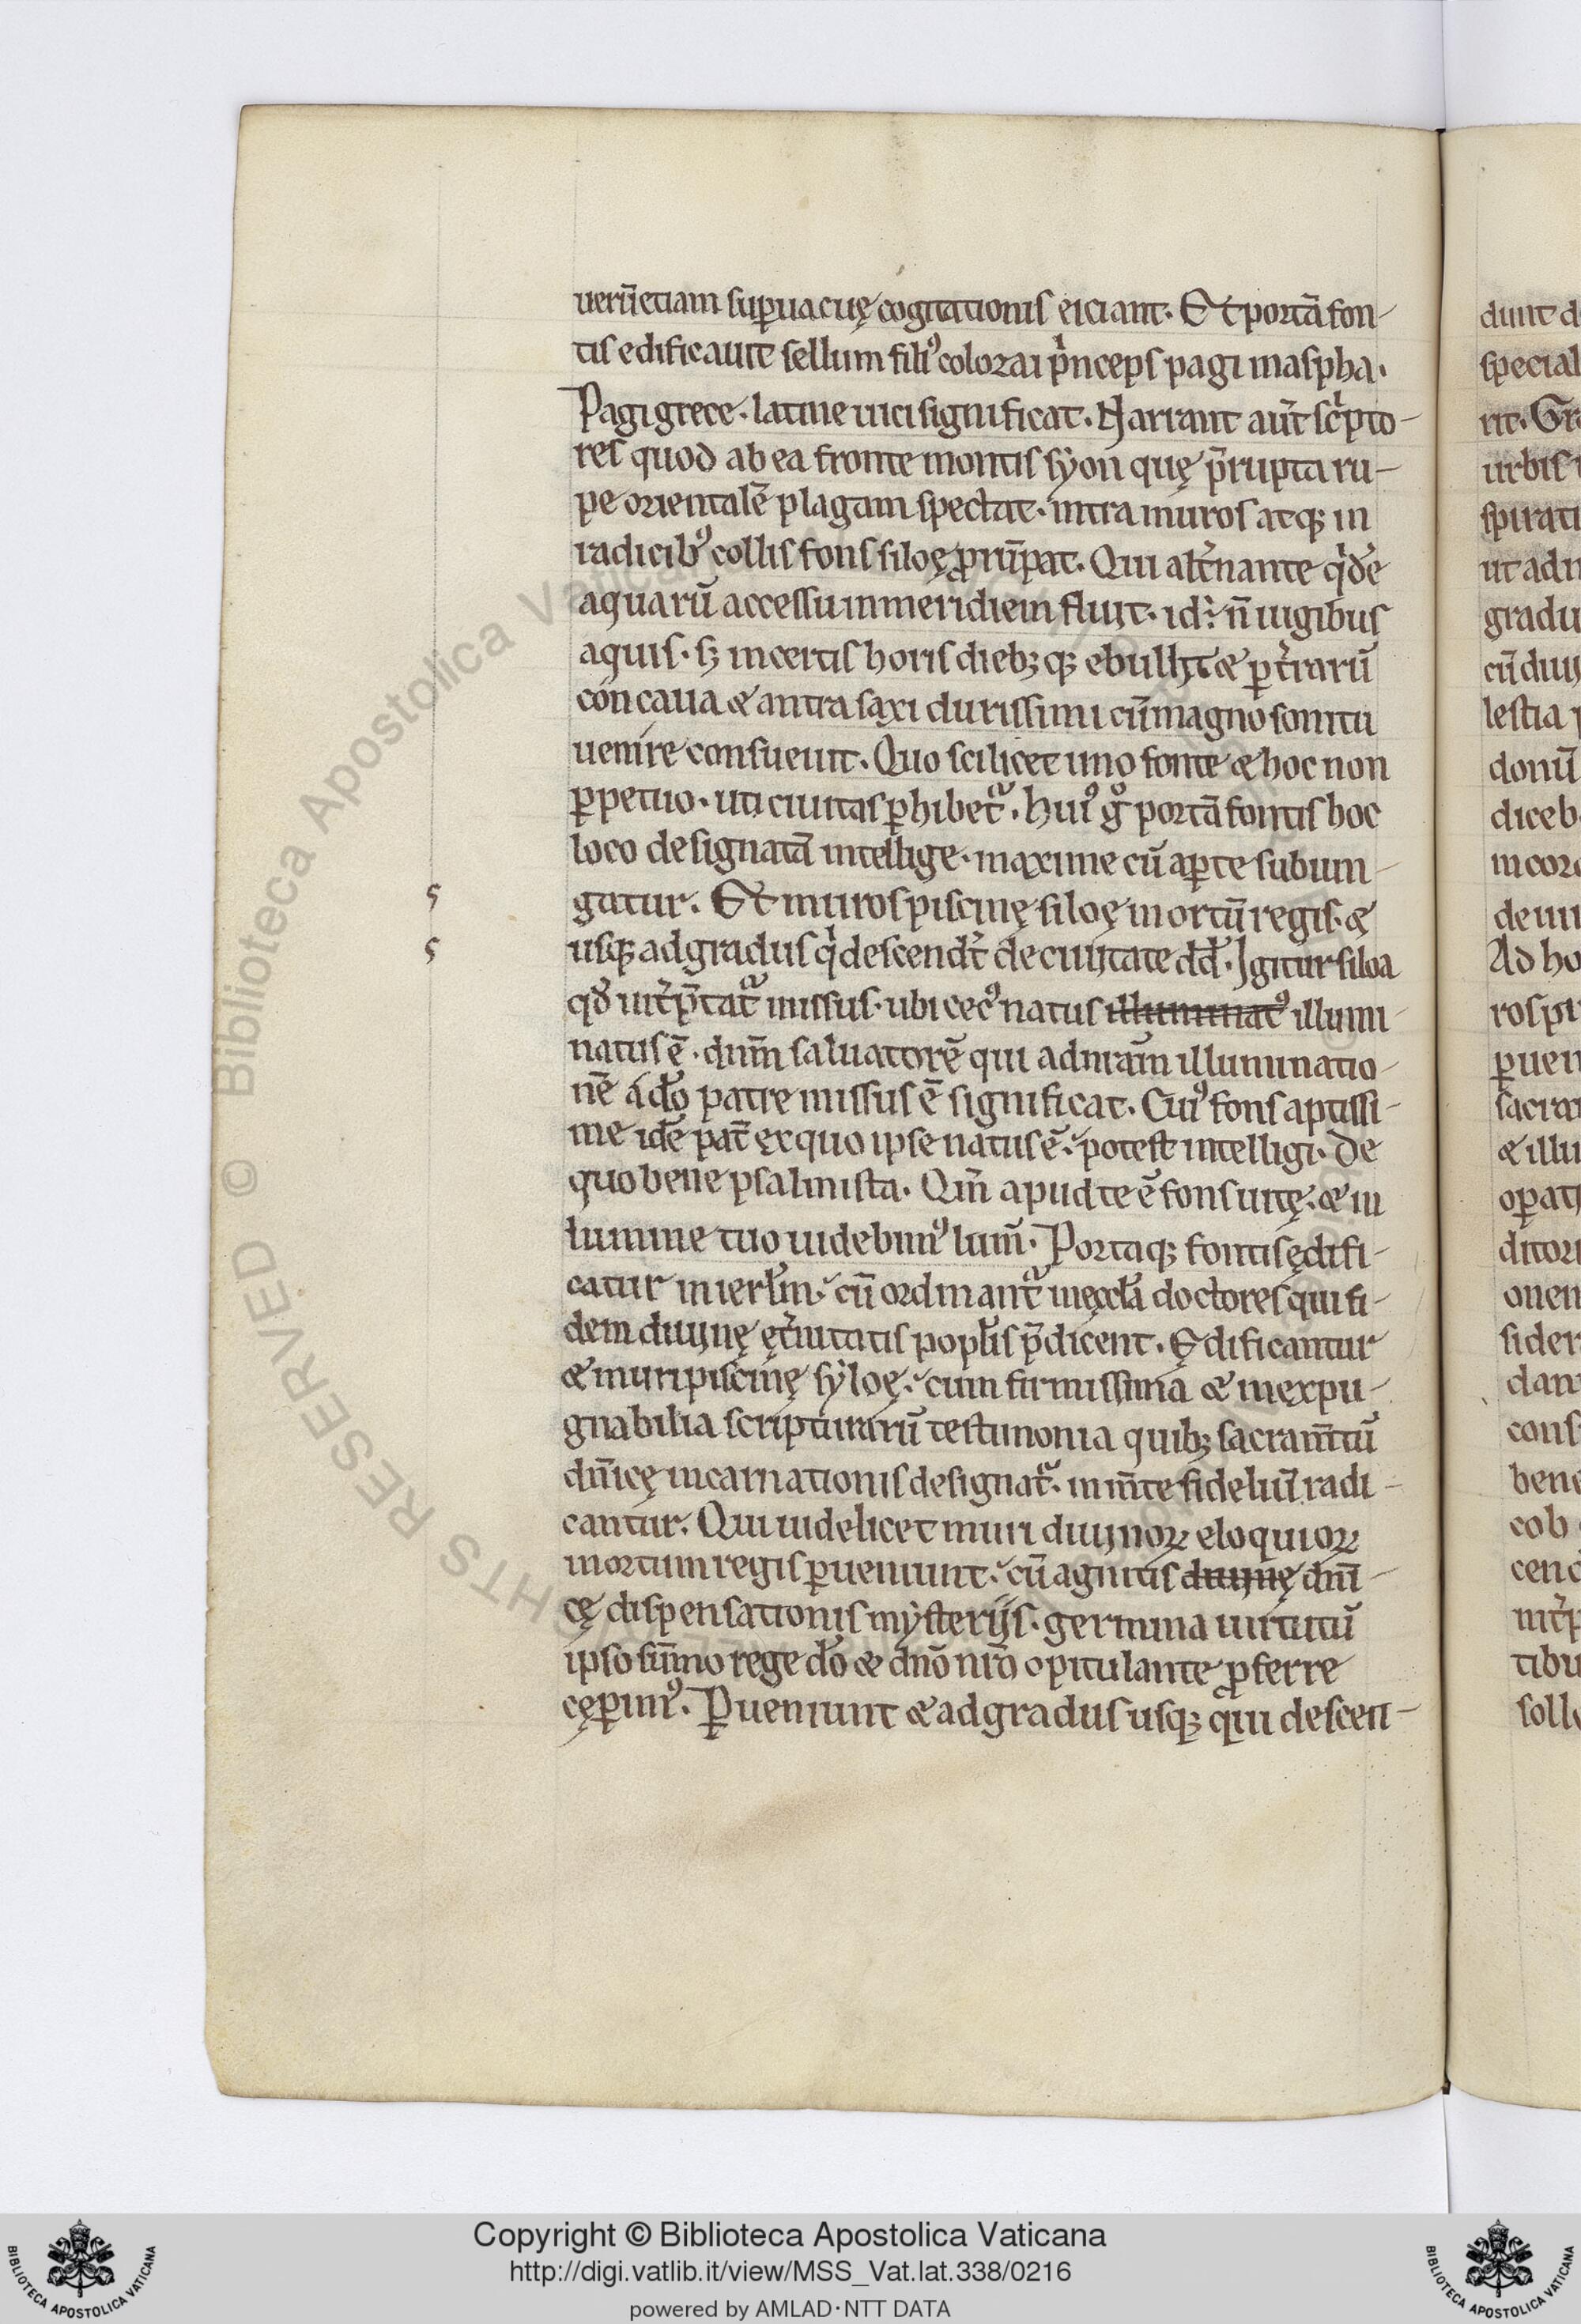 uerū etiam suꝑuacuę cogitationis eiciant. Et portā fon-
tis edificauit sellum filiꝰ colozai pͥnceps pagi maspha.
Pagi grece. latine uici significat. Narrant aut̄ scͥpto-
res quod ab ea fronte montis syon quę p̄rupta ru-
pe orientalē plagam spectat. intra muros atqꝫ in
radicibꝰ collis fons siloę ꝓrūpat. Qui alt̓nante qͥdē
aquarū accessu in meridiem fluit. id. n̄ iugibus
aquis. sꝫ incertis horis diebꝫqꝫ ebullit & ꝑ t̓rarū
concaua & antra saxi durissimi cū magno sonitu
uenire consueuit. Quo scilicet uno fonte & hoc non
ꝑpetuo. uti ciuitas ꝑhibet᷑. huiꝰ gͦ portā fontis hoc
loco designatā intellige. maxime cū aꝑte subiun-
gatur. Et muros piscinę siloę in ortū regis. &
usqꝫ ad gradus qͥ descendt̓ de ciuitate dd̄. Igitur siloa
qd̓ int̓p̄tat᷑ missus. ubi cecꝰ natus illuminatꝰ illumi-
natus ē. dn̄m saluatorē qui ad nr̄am illuminatio-
nē a dō patre missus ē significat. Cuiꝰ fons aptissi-
me idē pat̄ ex quo ipse natus ē. potest intelligi. De
quo bene psalmista. Qm̄ apud te ē fons uitę. & in
lumine tuo uidebimꝰ lum̄. Portaqꝫ fontis ędifi-
catur in ierl̄m. cū ordinant᷑ in ęccl̄a doctores qui fi-
dem diuinę ęt̓nitatis popl̄is p̄dicent. Ędificantur
& muri piscinę syloę. cum firmissima & inexpu-
gnabilia scripturarū testimonia quibꝫ sacram̄tū
dn̄icę incarnationis designat᷑. in m̄te fideliū radi-
cantur. Qui uidelicet muri diuinoꝝ eloquioꝝ
in ortum regis ꝑueniunt. cū agnitis diuinę dn̄i-
cę dispensationis mysteriis. germina uirtutū
ipso sūmo rege dō & dn̄o nr̄o opitulante ꝓferre
cęꝑimꝰ. Ꝑueniunt & ad gradus usqꝫ qui descen-
dunt d
special
rit. Gra
urbis
spirati
ut adn
gradu
cū diu
lestia p
donū
diceb
in cor
de uii
Ad ho
ros pi
ꝑuen
sacra
& illu
oꝑat
ditori
onen
sider
dan
cons
bene
cob
cend
int̓p
tibu
soll
© Biblioteca Apostolica Vaticana
Copyright © Biblioteca Apostolica Vaticana
http://digi.vatlib.it/view/MSS_Vat.lat.338/0216
powered by AMLAD·NTT DATA
BIBLIOTECA APOSTOLICA VATICANA
BIBLIOTECA APOSTOLICA VATICANA